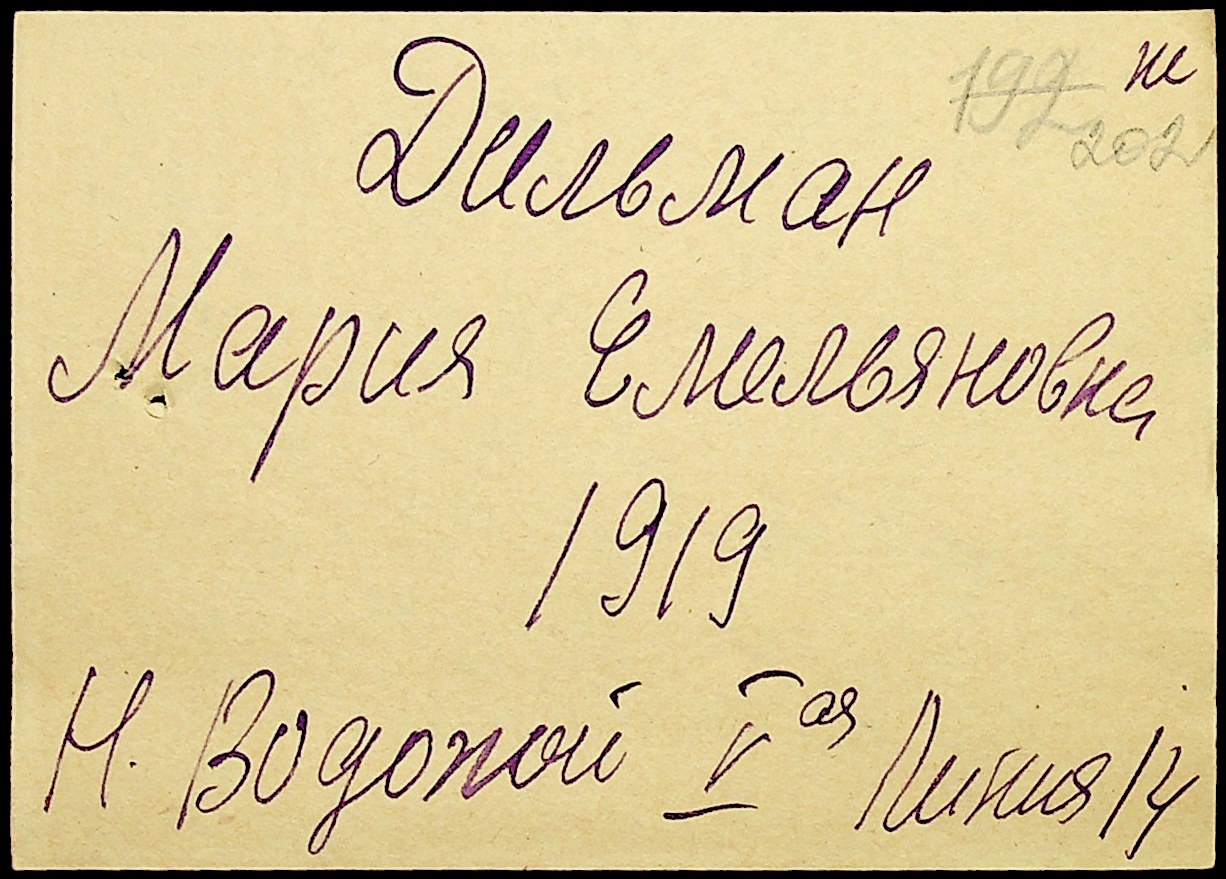 199 ж
202
Дильман
Мария Емельяновна
1919
Н. Водопой V ая Линия 14